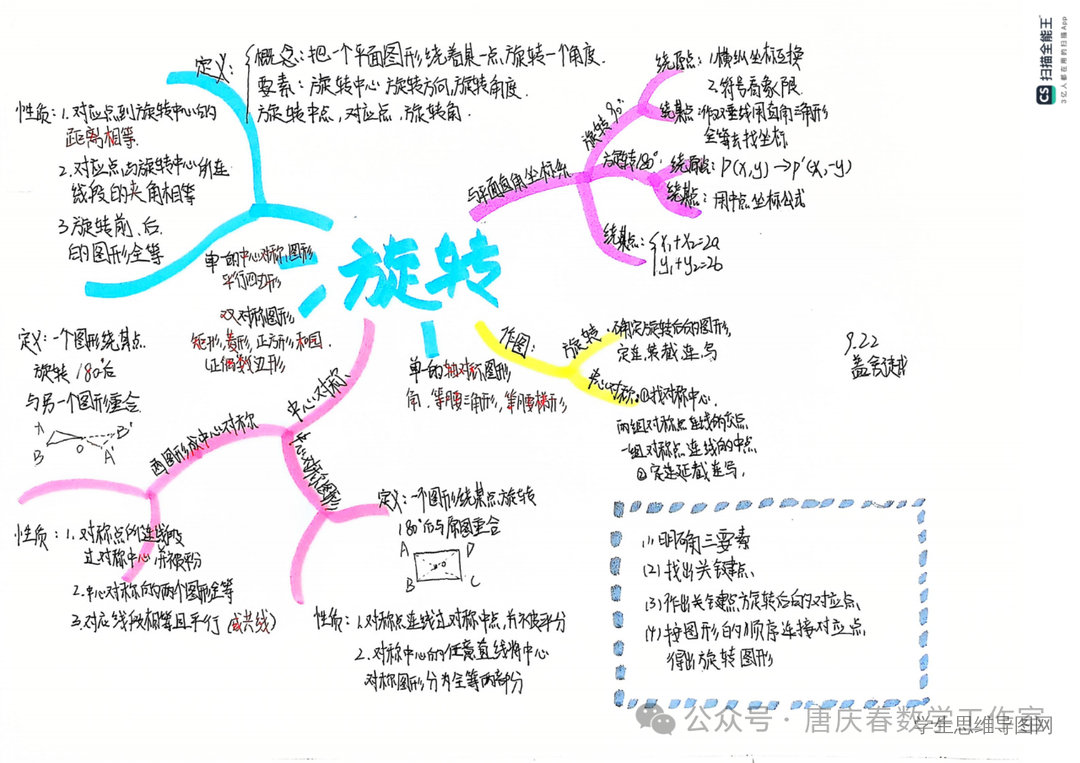 旋转
定义:
概念:把一个平面图形绕着某一点旋转一个角度.
要素:旋转中心 旋转方向,旋转角度.
旋转中点,对应点,旋转角.
性质:1.对应点到旋转中心的
距离相等.
2.对应点与旋转中心所连
线段的夹角相等
3.旋转前、后
的图形全等
与平面直角坐标系
旋转90°
绕原点:1.横纵坐标互换
2.符号看象限
绕某点:作垂线用直角三角形
全等去找坐标
旋转180°
绕原点:P(x,y)→P'(x,-y)
绕某点:用中点坐标公式
绕某点:
x₁+x₂=2a
y₁+y₂=2b
单一的中心对称图形
平行四边形
双对称图形
矩形,菱形,正方形和圆.
正偶数边形
单一的轴对称图形
角、等腰三角形,等腰梯形
作图:
旋转:确定旋转后的图形,
定连截连写
中心对称:①找对称中心.
两组对称点连线的交点
一组对称点连线的中点
②定连延截连写.
9.22
中心对称
两图形成中心对称
定义:一个图形绕某点
旋转180°后
与另一个图形重合.
A B O B' A'
性质:1.对称点的连线段
过对称中心 并被平分
2.中心对称的两个图形全等
3.对应线段相等且平行(或共线)
中心对称图形
定义:一个图形绕某点旋转
180°后与原图重合
A D
O
B C
性质:1.对称点连线过对称中点,并被平分
2.对称中心的任意直线将中心
对称图形分为全等两部分
(1)明确三要素
(2)找出关键点、
(3)作出关键点旋转后的对应点、
(4)按图形的顺序连接对应点、
得出旋转图形
CS 扫描全能王
3亿人都在用的扫描App
公众号·唐庆春数学工作室
学生思维导图网